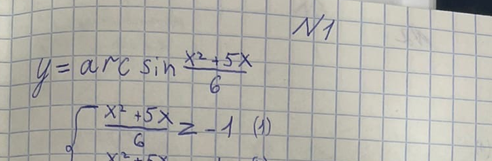 N1
y = arc sin (x² + 5x)/6
(x² + 5x)/6 ≥ -1 (1)